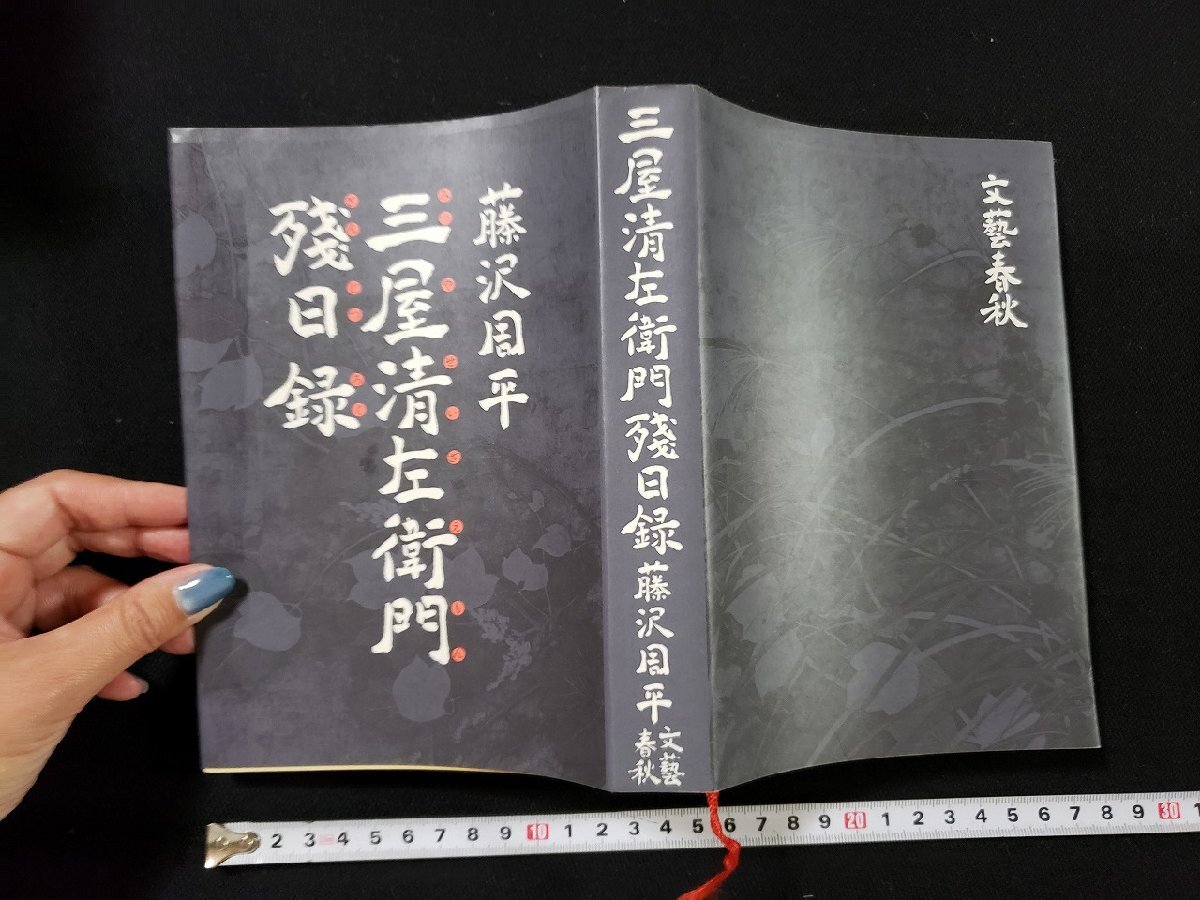 藤沢周平
三屋清左衛門
みや せいざえもん
殘日録
ざんじつろく
三屋清左衛門殘日録 藤沢周平
文藝
春秋
文藝春秋
2 3 4 5 6 7 8 9 10 1 2 3 4 5 6 7 8 9 20 1 2 3 4 5 6 7 8 9 30 1